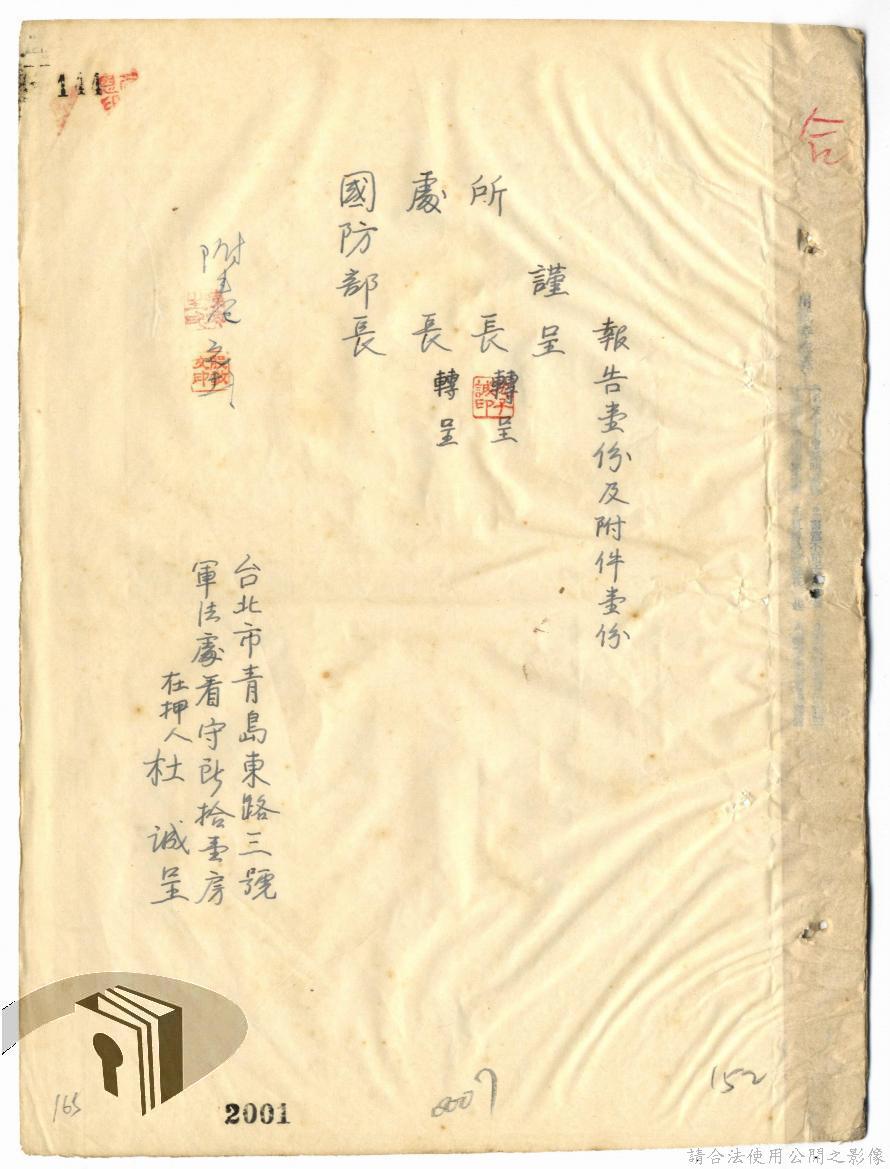 報告壹份及附件壹份
謹呈
所長轉呈
處長轉呈
國防部長
附
台北市青島東路三號
軍法處看守所拾壹房
在押人杜誠呈
合
144
165
2001
0007
152
請合法使用公開之影像